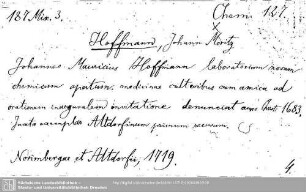 187 Mix. 3.
Chem. 127.
Hoffmann, Johann Moritz
Johannes Mauricius Hoffmann laboratorium novum
chimicum apertum medicinae cultoribus cum amica ad
orationem inauguralem invitatione denunciat 1683.
Juxta exemplar Altdorfinum recusum.
Norimbergae et Altdorfii, 1719.
4.
Sächsische Landesbibliothek -
Staats- und Universitätsbibliothek Dresden